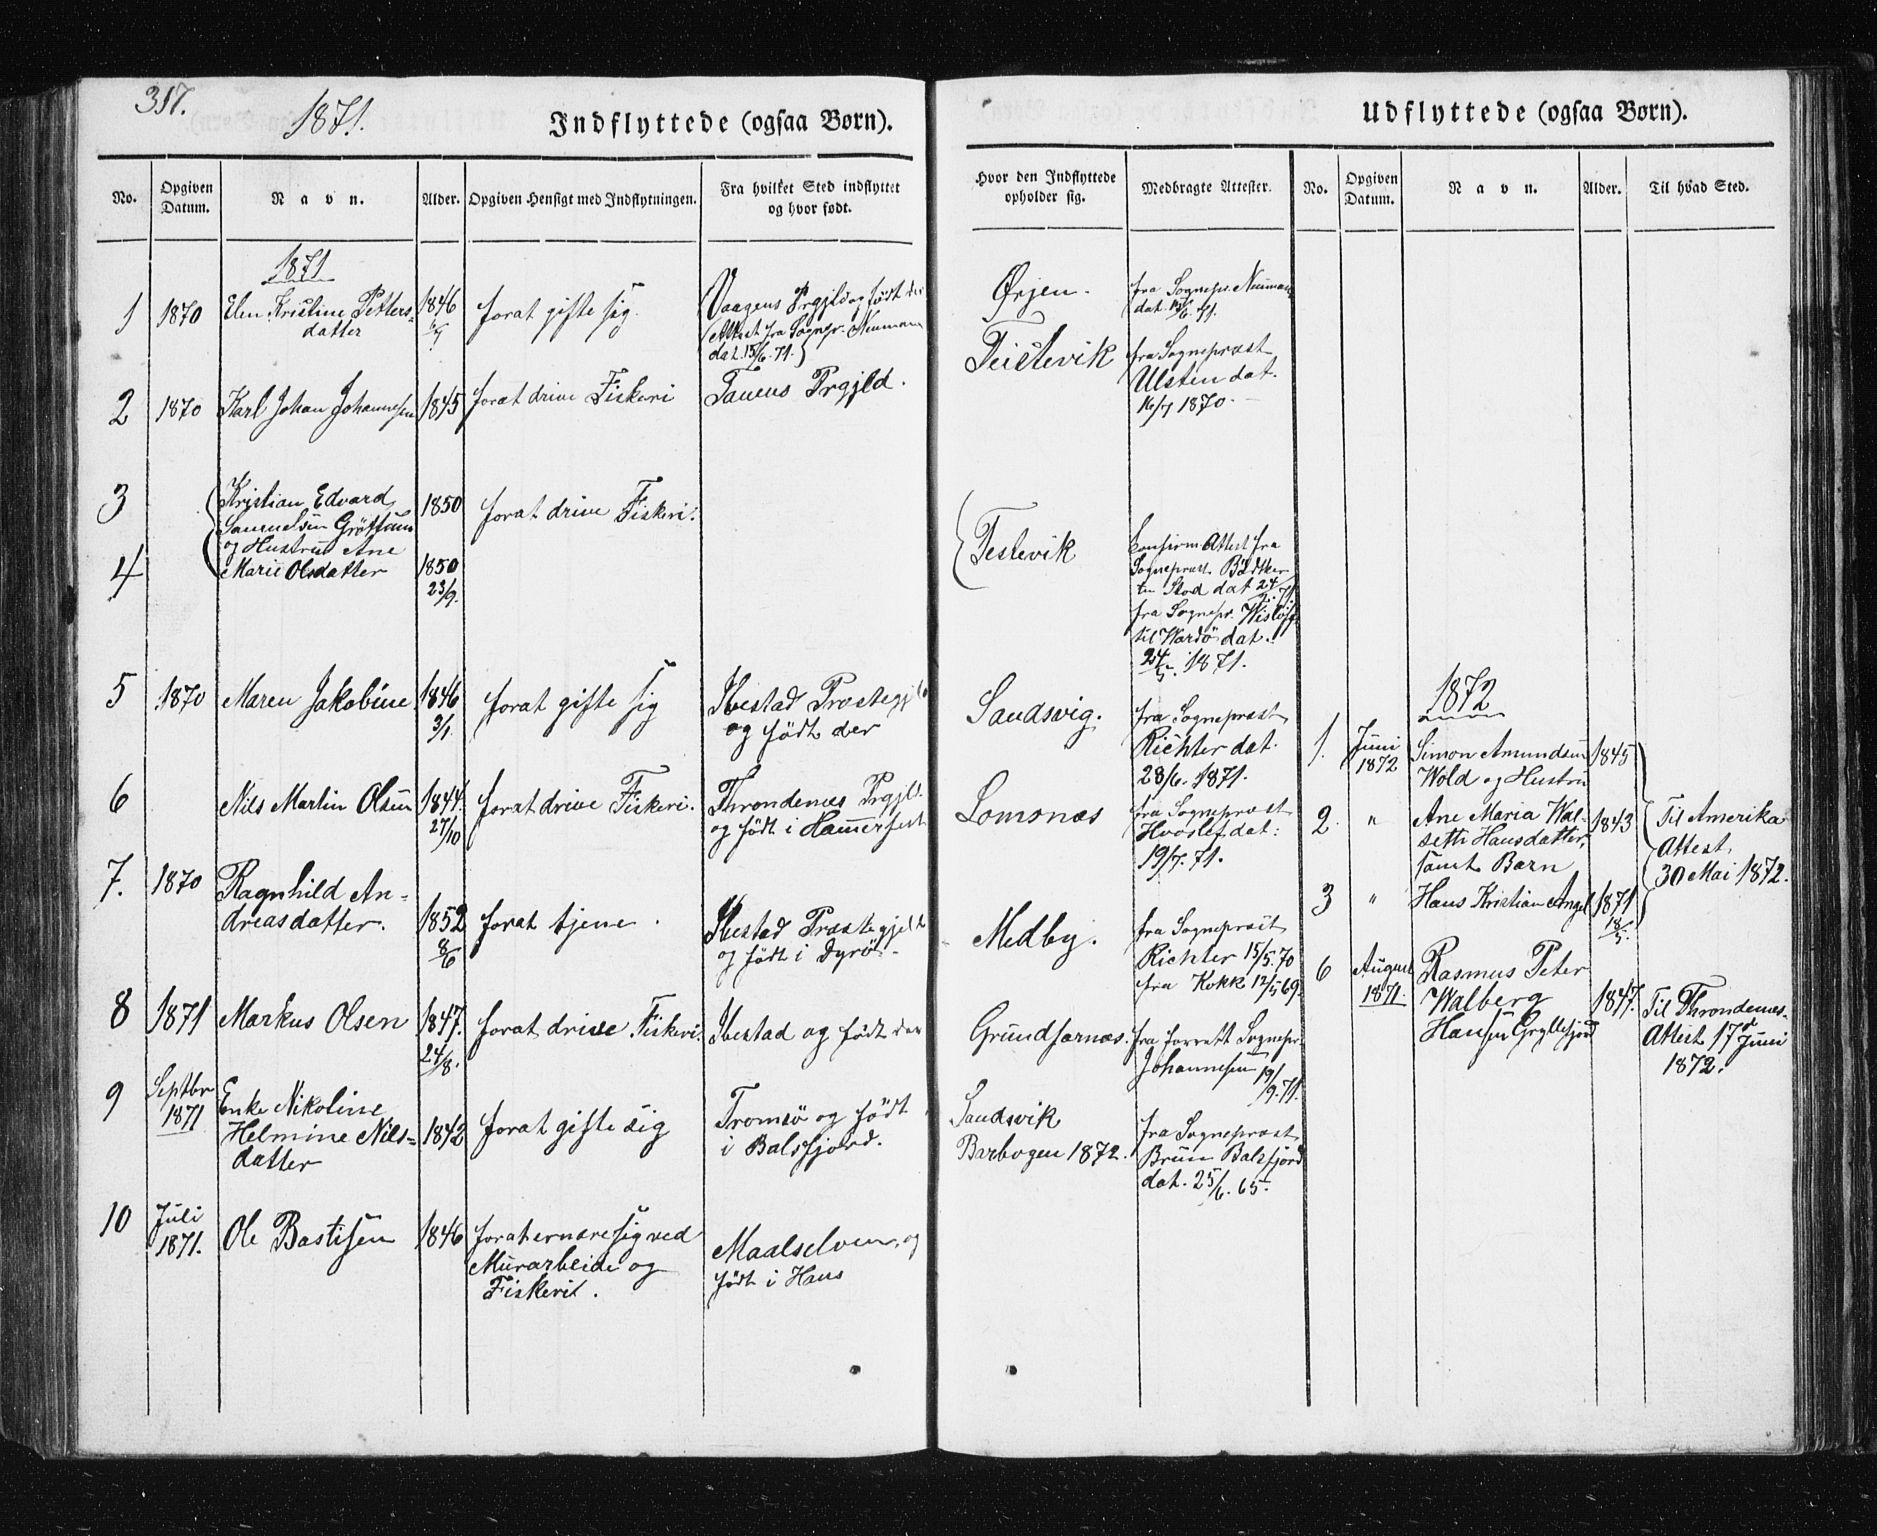 317.
1871.
Indflyttede (ogsaa Børn).
No.
Opgiven Datum.
Navn.
Alder.
Opgiven Hensigt med Indflytningen.
Fra hvilket Sted indflyttet og hvor født.
1871
1
1870
Elen Kristine Petters=
datter
1846
forat gifte sig.
Vaagens Prgjld og født der
(Attest fra Sognepr. Neumann
dat. 15/6. 71.)
2
1870
Karl Johan Johannesen
1845
forat drive Fiskeri
Tanens Prgjld.
3
Kristian Edvard
Samuelsen Gröttum
og Hustru Ane
1850
forat drive Fiskeri.
4
Marie Olsdatter
1850
23/9.
5
1870
Maren Jakobine
1846
3/1.
forat gifte sig
Ibestad Præstegjld
og födt der
6
Nils Martin Olsen
1844.
27/10
forat drive Fiskeri.
Throndenæs Prgjld.
og födt i Hamerfest
7.
1870
Ragnhild An=
dreasdatter.
1852
8/6
forat tjene.
Ibestad Præstegjeld
og födt i Dyrö.
8
1871
Markus Olsen
1847.
24/8.
forat drive Fiskeri.
Ibestad og födt der
9
Septbr
1871
Enke Nikoline
Helmine Nils=
datter
1842
forat gifte sig
Tromsö og födt
i Balsfjord.
10
Juli
1871.
Ole Bastisen
1846
forat ernære sig ved
Murarbeide og
Fiskeri.
Maalselven, og
födt i Hans
Udflyttede (ogsaa Børn).
Hvor den Indflyttede opholder sig.
Medbragte Attester.
No.
Opgiven Datum.
Navn.
Alder.
Til hvad Sted.
Ørjen.
fra Sognepr. Neumann
dat. 15/6. 71.
Teistevik
fra Sognepræst
Ulsten dat.
16/7 1870.
Testevik
Konfirm Attest fra
Sognepræst Bödtker
til Stod dat 24/
fra Sognepr. Wislöff
til Wardö dat.
24/5. 1871.
Sandsvig.
fra Sognepræst
Richter dat.
28/6. 1871.
Lomsnæs
fra Sognepræst
Hvoslef dat:
19/7. 71.
Medby.
fra Sognepræst
Richter 15/5. 70
fra Kokk 12/5 69.
Grundfarnæs.
fra forrett Sognepr.
Johannesen 19/
9. 71.
Sandsvik
Barbogen 1872.
fra Sognepræst
Bruun Balsfjord
dat. 25/6. 65.
1872
1.
Juni
1872
Simon Amundsen
Wold og Hustru
1845
2
"
Ane Maria Wal-
seth Hansdatter,
samt Barn
1843
Til Amerika
Attest
30 Mai 1872.
3
"
Hans Kristian Angel
1871
18/5.
6
August
1871.
Rasmus Peter
Walberg
Hansen Gryllefjord
1847.
Til Throndenæs.
Attest 17de Juni
1872.